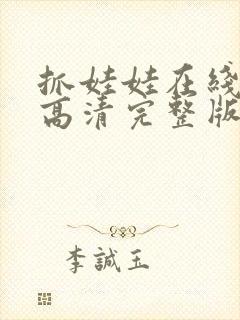 抓娃娃在线
高清完整版
李誠玉